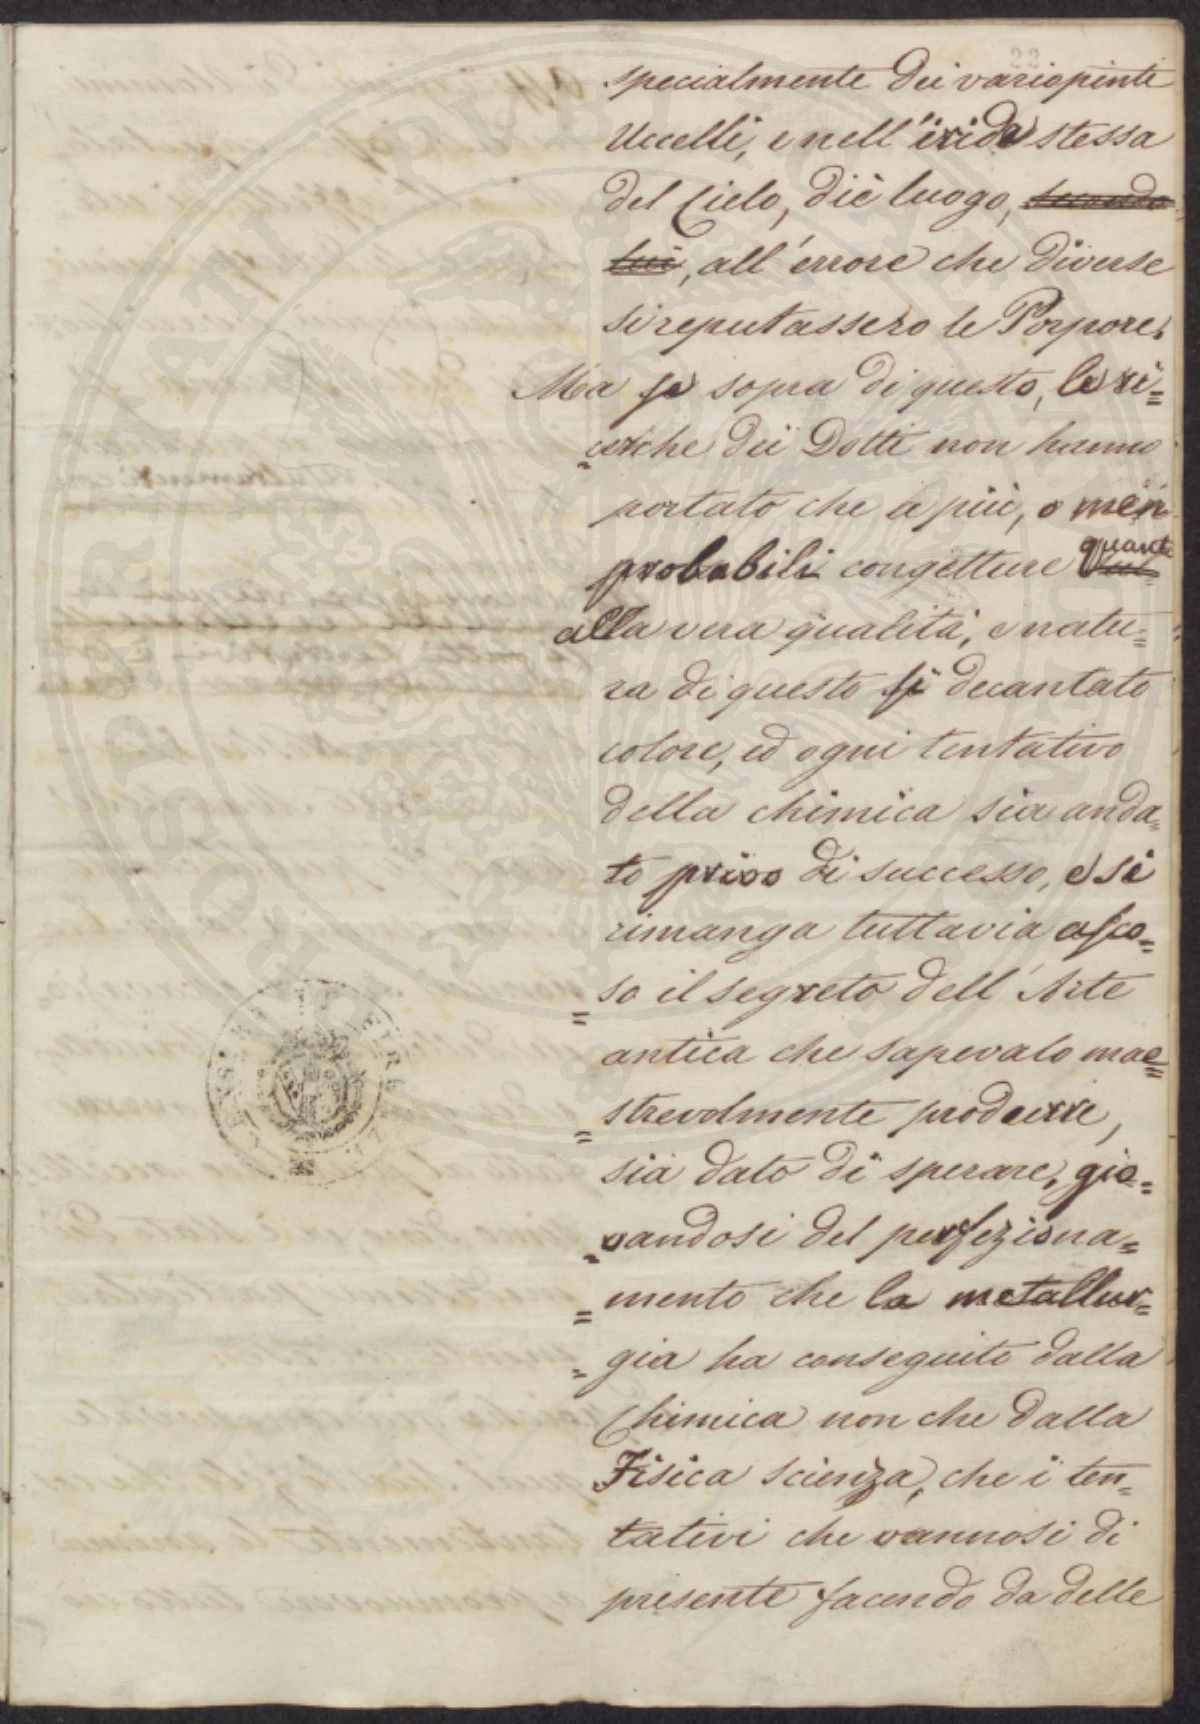 22
specialmente dei variopinti
Uccelli, e nell'iride stessa
del Cielo, diè luogo, secondo
lui, all'errore che diverse
si reputassero le Porpore.
Ma se sopra di questo, le ri=
=cerche dei Dotti non hanno
portato che a più, o men
probabili congetture quanto
alla vera qualità, e natu=
ra di questo sì decantato
colore, ed ogni tentativo
della chimica sia anda=
to privo di successo, e si
rimanga tuttavia asco=
=so il segreto dell'Arte
antica che sapevalo mae=
=strevolmente produrre,
sia dato di sperare, gio=
=vandosi del perfeziona=
=mento che la metallur=
=gia ha conseguito dalla
Chimica non che dalla
Fisica scienza, che i ten=
tativi che vannosi di
presente facendo da delle